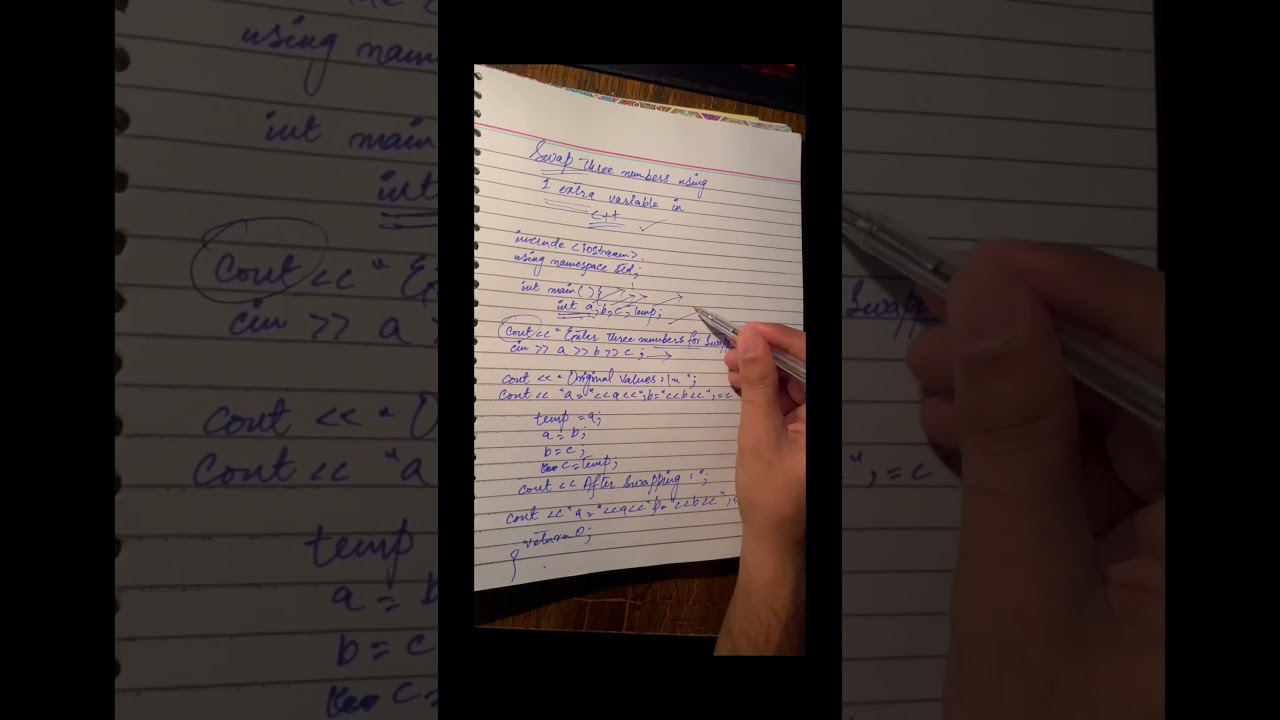 Swap three numbers using
1 extra variable in
C++
include <iostream>.
using namespace std;
int main() {
int a, b, c, temp;
cout << "Enter three numbers for Swapp
cin >> a >> b >> c ;
cout << "Original values :\n";
cout << "a = "<<a<<", b="<<b<<", =c
temp = a;
a = b;
b = c;
c = temp;
cout << After swapping :";
cout << "a="<<a<<"b="<<b<<",
return 0;
}